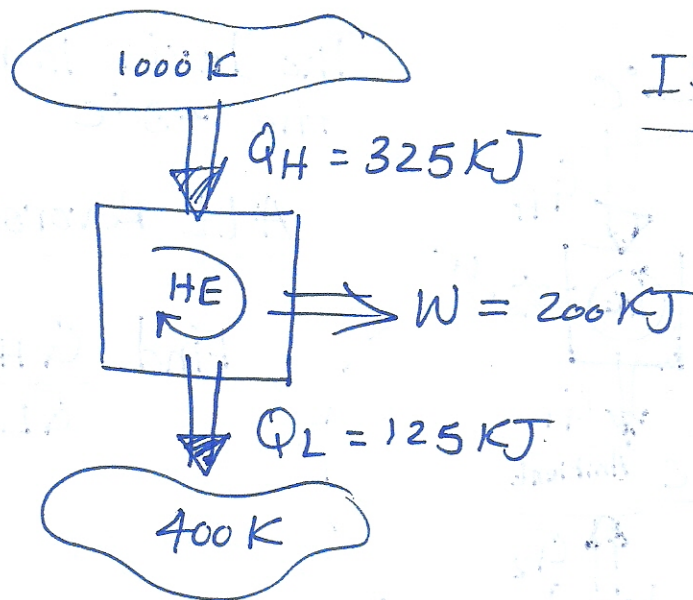 1000 K
I.
QH = 325 KJ
HE
W = 200 KJ
QL = 125 KJ
400 K